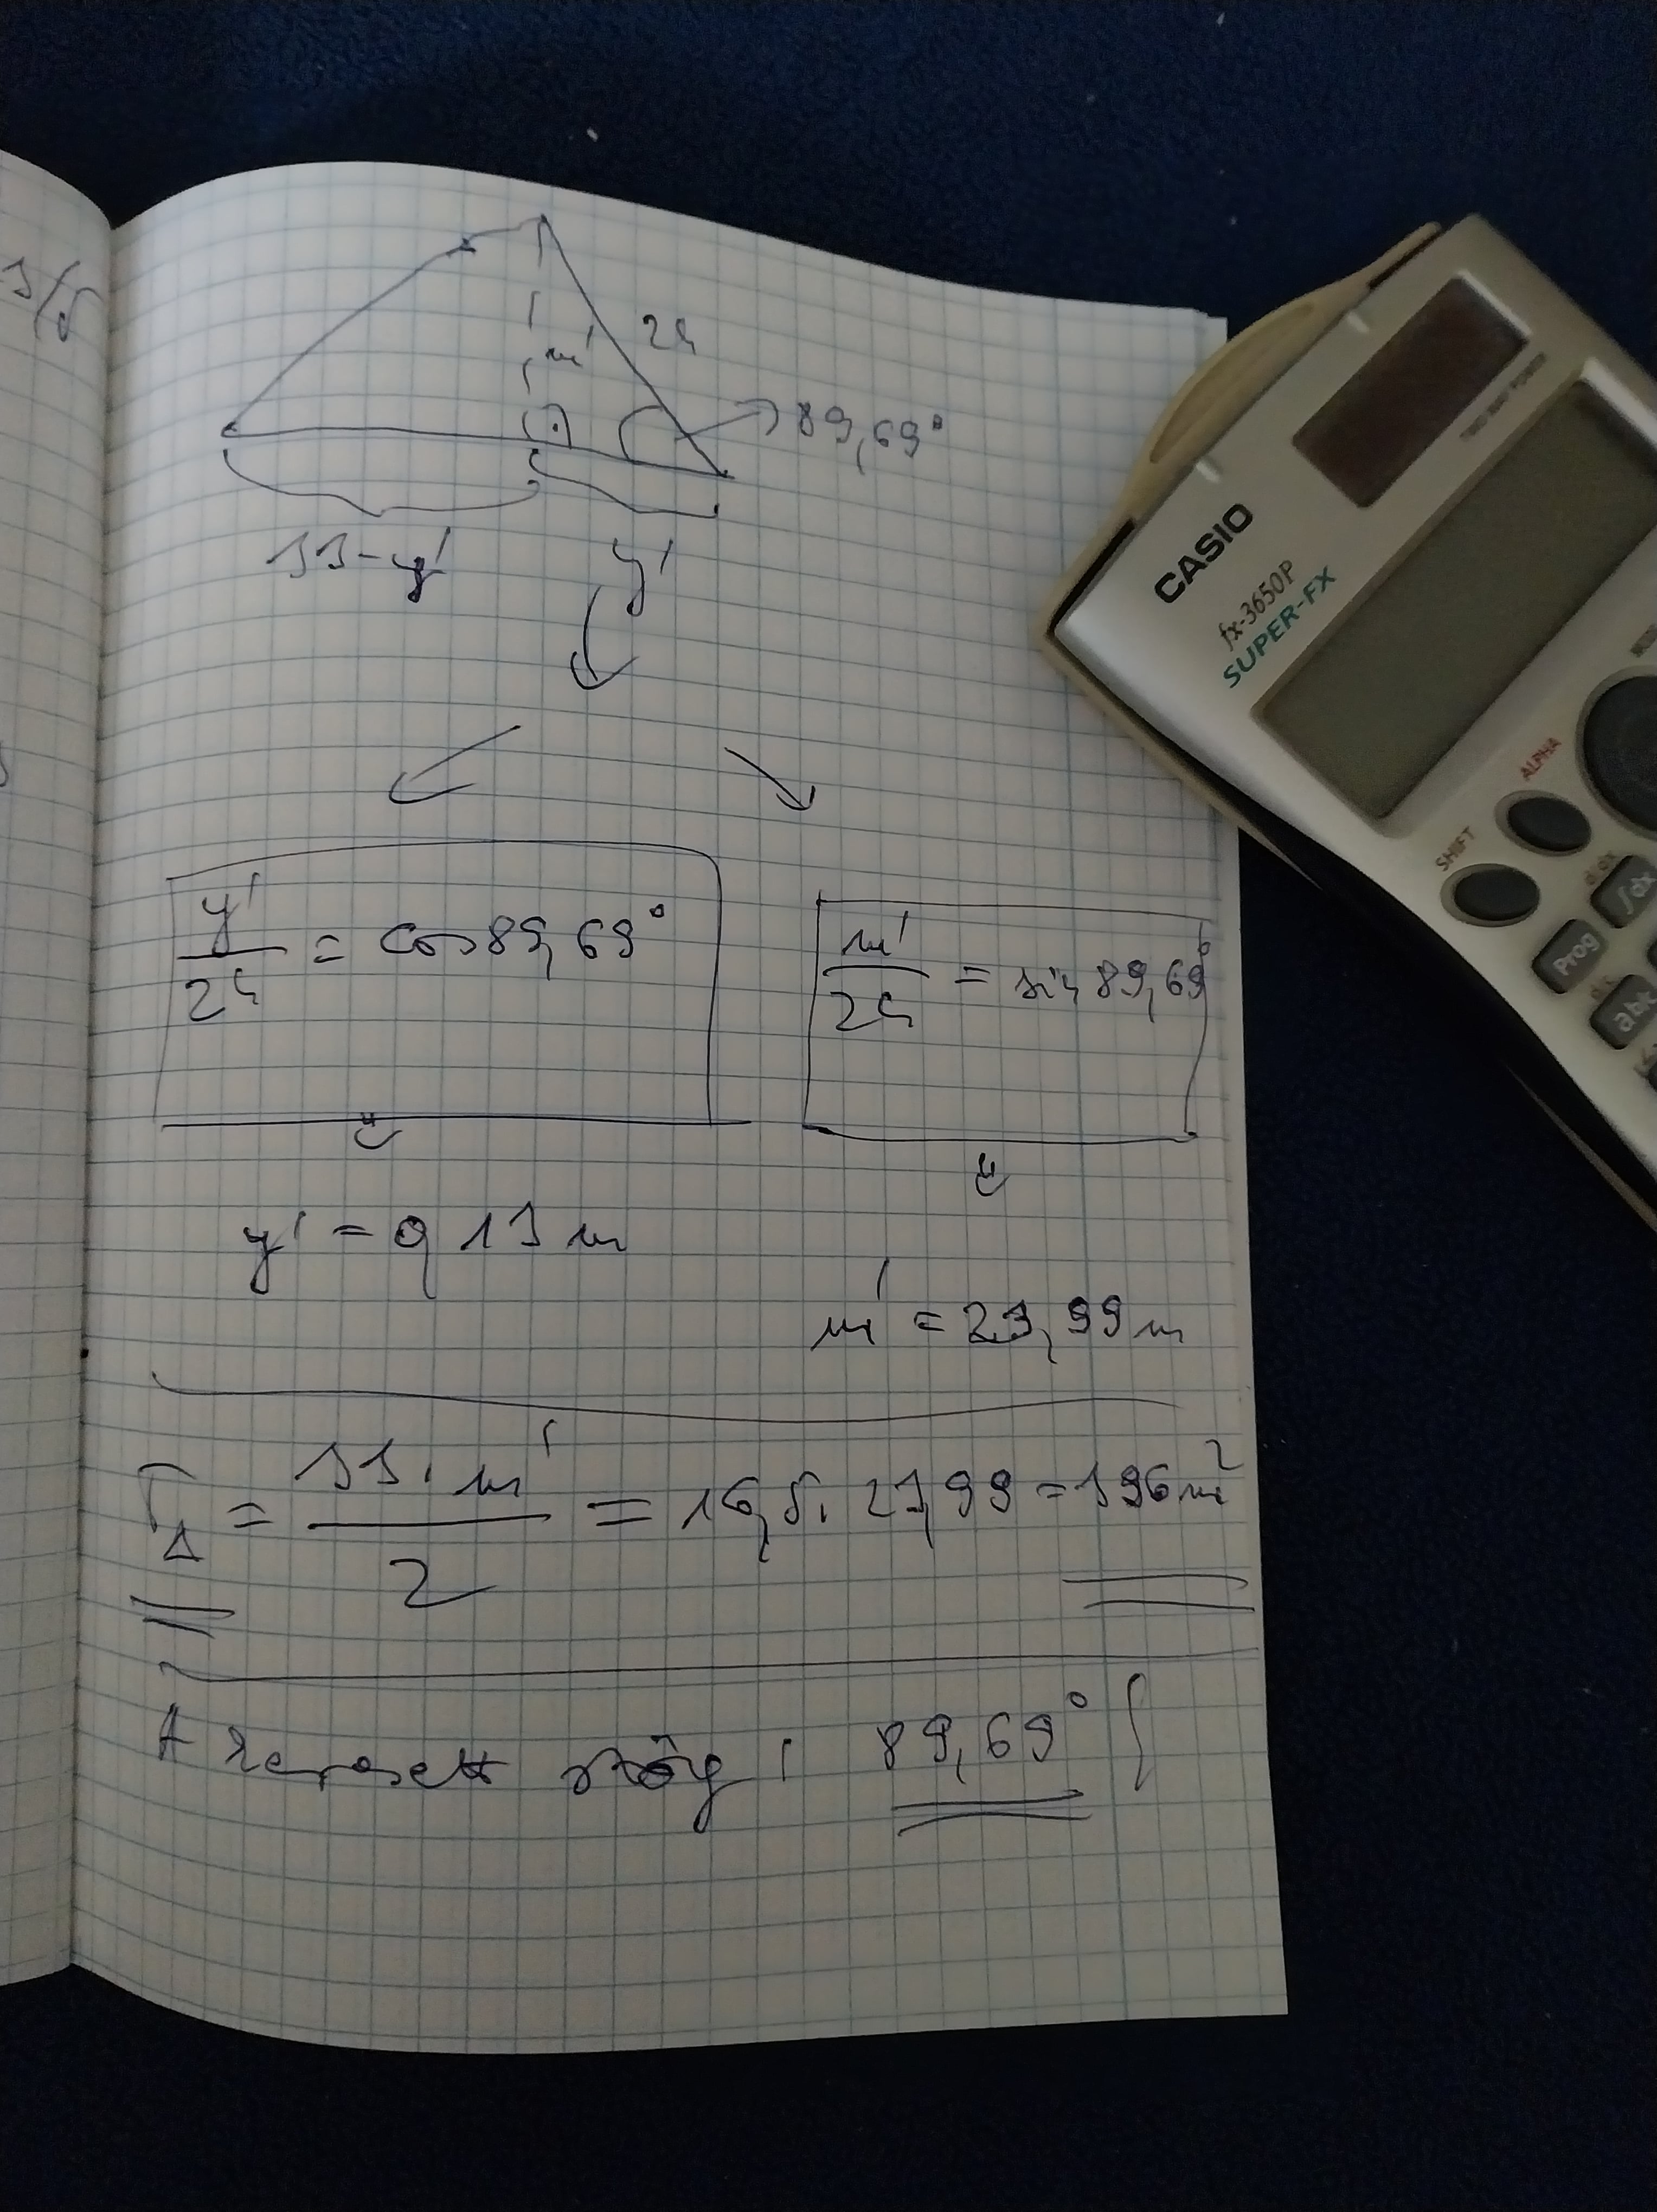 3/5
m'
24
89,69°
33-y'
y'
y'/24 = cos 89,69°
m'/24 = sin 89,69°
y' = 0,13 m
m' = 23,99 m
T△ = 33·m'/2 = 16,5·23,99 = 396 m²
A keresett szög: 89,69°
CASIO
fx-3650P
SUPER-FX
TWO WAY POWER
ALPHA
SHIFT
∫dx
Prog